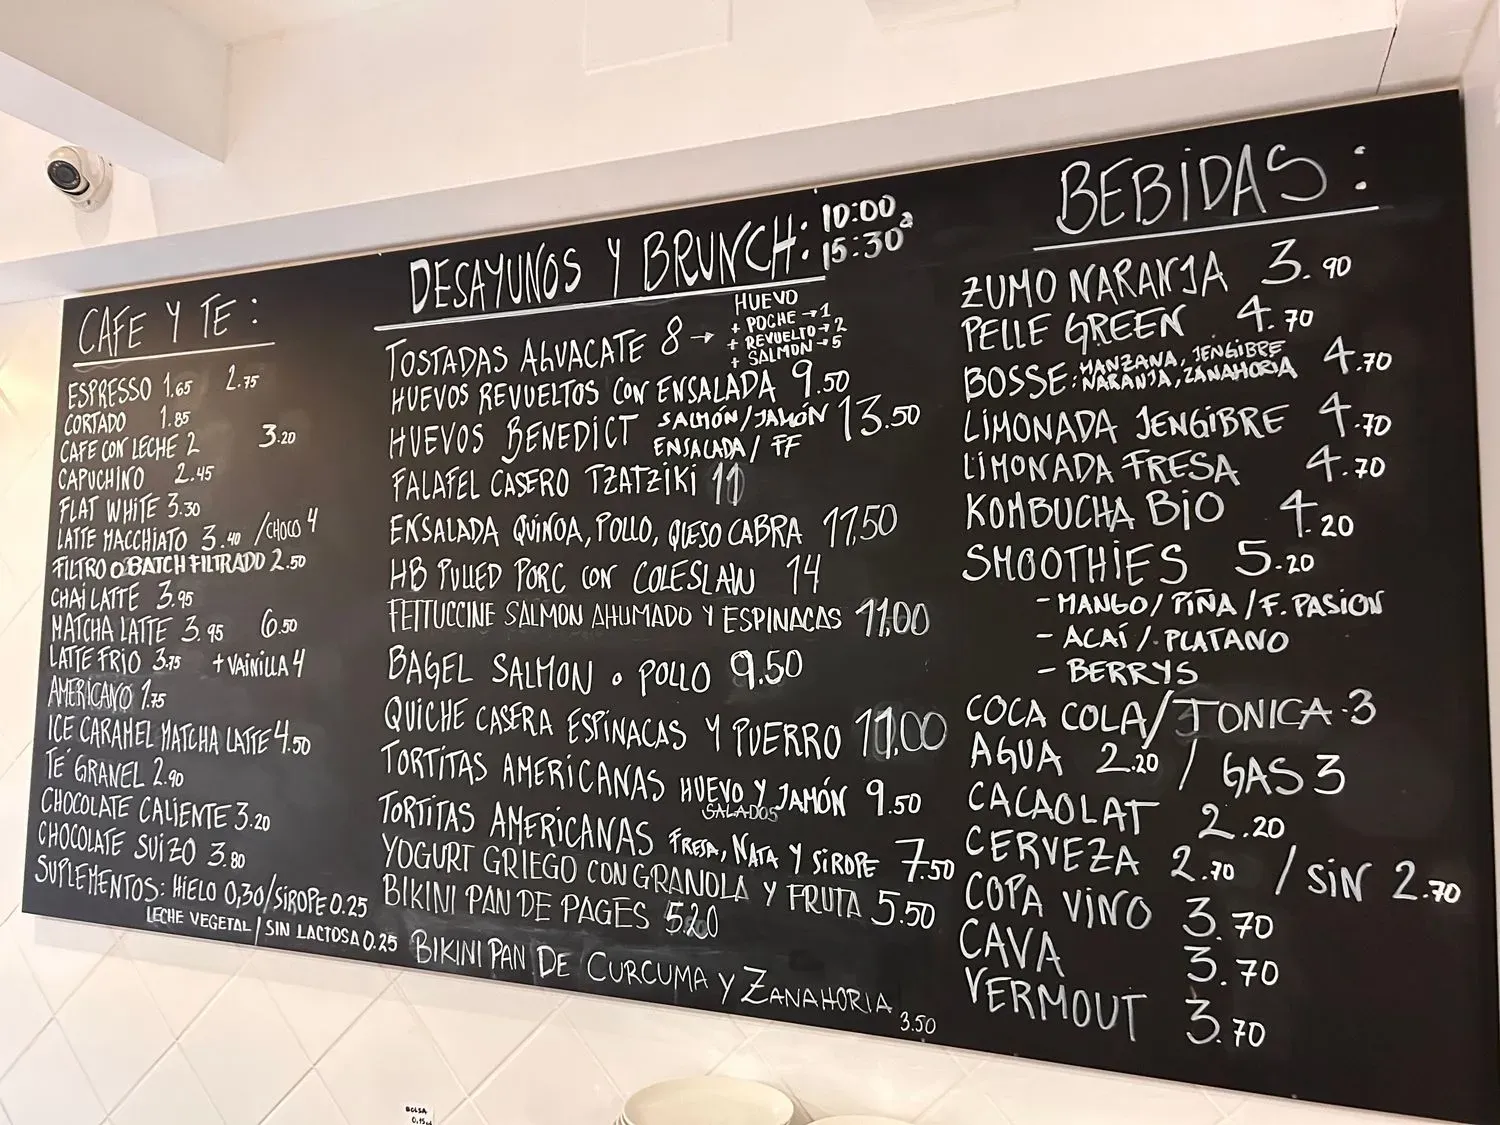 CAFE Y TE :
ESPRESSO 1.65 2.75
CORTADO 1.85
CAFE CON LECHE 2 3.20
CAPUCHINO 2.45
FLAT WHITE 3.30
LATTE MACCHIATO 3.40 /CHOCO 4
FILTRO O BATCH FILTRADO 2.50
CHAI LATTE 3.95
MATCHA LATTE 3.95 6.50
LATTE FRIO 3.75 +VAINILLA 4
AMERICANO 1.75
ICE CARAMEL MATCHA LATTE 4.50
TÉ GRANEL 2.90
CHOCOLATE CALIENTE 3.20
CHOCOLATE SUIZO 3.80
SUPLEMENTOS: HIELO 0,30/SIROPE 0.25
LECHE VEGETAL / SIN LACTOSA 0.25
DESAYUNOS Y BRUNCH: 10:00 a
15:30
TOSTADAS AHVACATE 8 →
HUEVO
+ POCHE → 1
+ REVUELTO → 2
+ SALMON → 5
HUEVOS REVUELTOS CON ENSALADA 9.50
HUEVOS BENEDICT SALMÓN/JAMÓN 13.50
ENSALADA / FF
FALAFEL CASERO TZATZIKI 11
ENSALADA QUINOA, POLLO, QUESO CABRA 11,50
HB PULLED PORC CON COLESLAW 14
FETTUCCINE SALMON AHUMADO Y ESPINACAS 11,00
BAGEL SALMON o POLLO 9.50
QUICHE CASERA ESPINACAS Y PUERRO 11,00
TORTITAS AMERICANAS HUEVO Y JAMÓN 9.50
SALADOS
TORTITAS AMERICANAS FRESA, NATA Y SIROPE 7.50
YOGURT GRIEGO CON GRANOLA Y FRUTA 5.50
BIKINI PAN DE PAGES 5.20
BIKINI PAN DE CURCUMA Y ZANAHORIA 3.50
BEBIDAS :
ZUMO NARANJA 3.90
PELLE GREEN 4.70
BOSSE: MANZANA, JENGIBRE 4.70
NARANJA, ZANAHORIA
LIMONADA JENGIBRE 4.70
LIMONADA FRESA 4.70
KOMBUCHA BIO 4.20
SMOOTHIES 5.20
- MANGO/ PIÑA / F. PASION
- ACAÍ / PLATANO
- BERRYS
COCA COLA/TONICA 3
AGUA 2.20 / GAS 3
CACAOLAT 2.20
CERVEZA 2.70 / SIN 2.70
COPA VINO 3.70
CAVA 3.70
VERMOUT 3.70
BOLSA